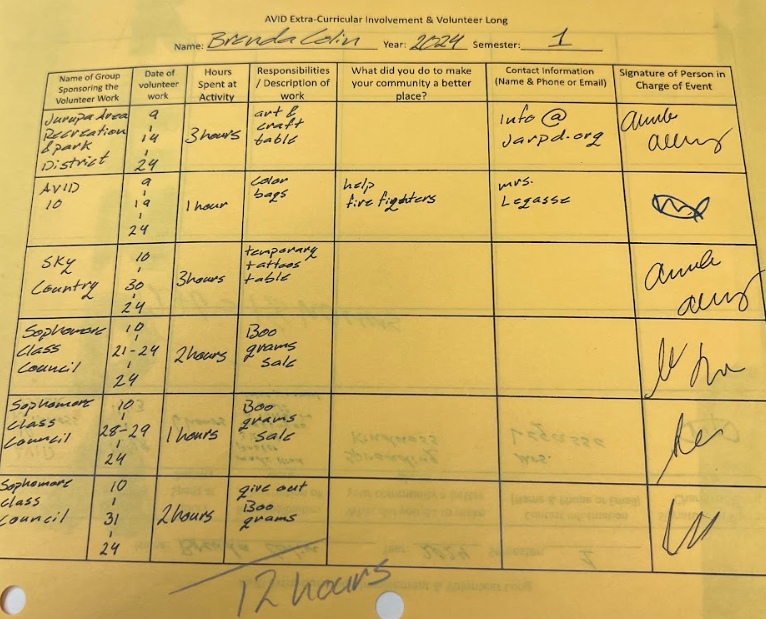 AVID Extra-Curricular Involvement & Volunteer Long
Name: Brenda Colin Year: 2024 Semester: 1
Name of Group Sponsoring the Volunteer Work
Date of volunteer work
Hours Spent at Activity
Responsibilities / Description of work
What did you do to make your community a better place?
Contact Information (Name & Phone or Email)
Signature of Person in Charge of Event
Jurupa Area
Recreation
& park
District
9
14
24
3 hours
art &
craft
table
Info @
Jarpd.org
AVID
10
9
19
24
1 hour
color
bags
help
fire fighters
mrs.
Legasse
Sky
Country
10
30
24
3 hours
temporary
tattoos
table
Sophomore
Class
Council
10
21-24
24
2 hours
Boo
grams
Sale
Sophomore
Class
Council
10
28-29
24
1 hours
Boo
grams
Sale
Sophomore
Class
Council
10
31
24
2 hours
give out
Boo
grams
12 hours